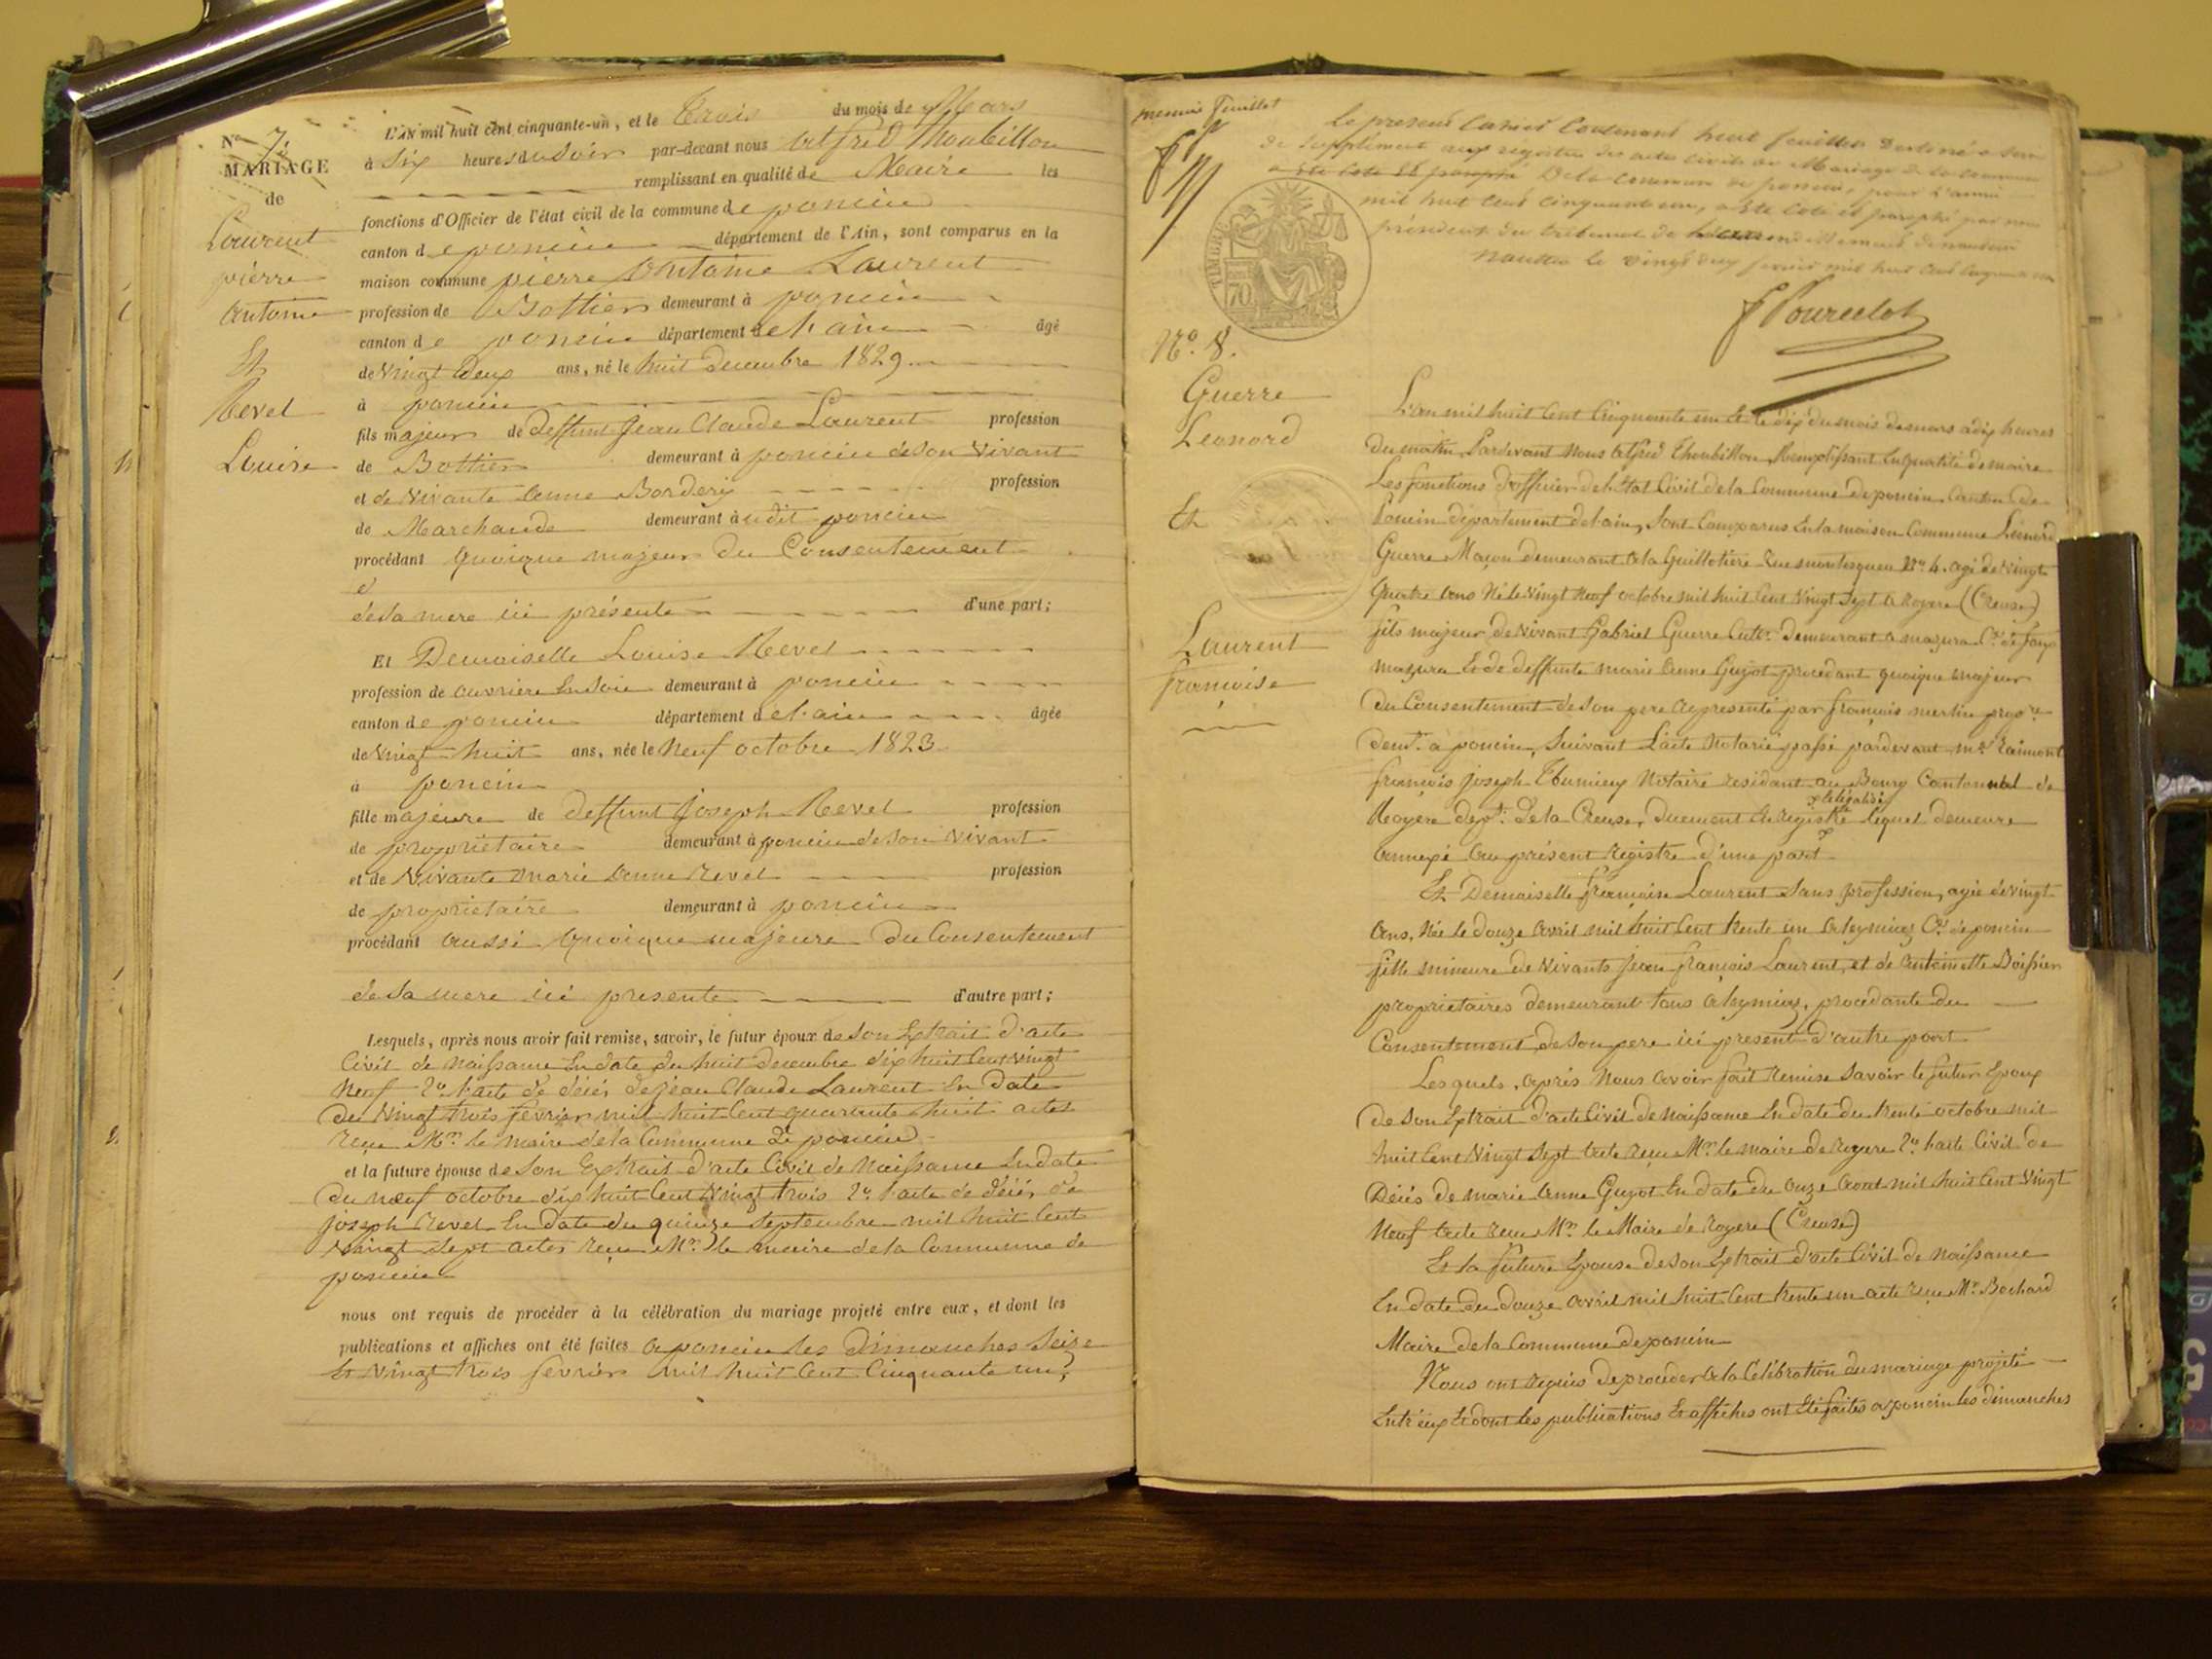 N° 7.
MARIAGE
de
Laurent
pierre
Antoine
Et
Revel
Louise
L'AN mil huit cent cinquante-un, et le Trois du mois de Mars
à Six heures du Soir par-devant nous Alfred Thoubillon
remplissant en qualité de Maire les
fonctions d'Officier de l'état civil de la commune de poncin
canton de poncin département de l'Ain, sont comparus en la
maison commune pierre Antoine Laurent
profession de Bottier demeurant à poncin
canton de poncin département de l'ain âgé
de Vingt deux ans, né le huit decembre 1829
à poncin
fils majeur de deffunt Jean Claude Laurent profession
de Bottier demeurant à poncin de son Vivant
et de Vivante Anne Borderix profession
de Marchande demeurant à udit poncin
procédant quoique majeur du Consentement
de sa mere ici présente d'une part;
Et Demoiselle Louise Revel
profession de ouvrière En Soie demeurant à poncin
canton de poncin département de l'ain âgée
de Vingt huit ans, née le Neuf octobre 1823
à poncin
fille majeure de deffunt Joseph Revel profession
de propriétaire demeurant à poncin de son Vivant
et de Vivante Marie Anne Revel profession
de propriétaire demeurant à poncin
procédant aussi quoique majeure du Consentement
de sa mere ici presente d'autre part;
Lesquels, après nous avoir fait remise, savoir, le futur époux de son Extrait d'acte
Civil de Naissance En date du huit decembre dix huit Cent Vingt
Neuf 2° l'acte de décès de jean Claude Laurent En date
du Vingt trois fevrier mil huit Cent quarante huit actes
reçu Mr. le maire de la Commune de poncin
et la future épouse de son Extrait d'acte Civil de Naissance En date
du neuf octobre dix huit Cent Vingt trois 2° l'acte de décès de
joseph Revel En date du quinze Septembre mil huit Cent
Vingt Sept actes reçu Mr. le maire de la Commune de
poncin
nous ont requis de procéder à la célébration du mariage projeté entre eux, et dont les
publications et affiches ont été faites a poncin les Dimanches Seize
Et Vingt trois fevrier mil huit Cent Cinquante un,
premier feuillet
Le present Cahier Contenant huit feuillets Destiné a servir
de Supplément aux registres des actes civils de Mariage de la commune
de la Commune de poncin, pour l'année
mil huit Cent Cinquante un, a été Coté et paraphé par nous
président du tribunal de
Nantua le vingt deux fevrier mil huit Cent Cinquante un
TIMBRE
70
F Pourcelot
N° 8.
Guerre
Leonard
Et
Laurent
françoise
L'an mil huit Cent Cinquante un Et le dix du mois de mars à dix heures
du matin, Pardevant Nous Alfred Thoubillon, Remplissant En qualité de maire
Les fonctions d'officier de l'Etat Civil de la Commune de poncin Canton de
Poncin département de l'ain, Sont Comparus En la maison Commune Léonard
Guerre Maçon demeurant à la Guillotière Rue montesquieu N° 4. agé de Vingt
Quatre Ans Né le Vingt Neuf octobre mil huit Cent Vingt Sept à Royere (Creuse)
fils majeur de Vivant Gabriel Guerre Cultr. demeurant a mazura Con. de faux
mazura Et de deffunte marie Anne Guyot procedant quoique majeur
du Consentement de son pere représenté par françois mertin propre.
demt. a poncin, Suivant L'acte Notarié passé pardevant me. Raimont
françois joseph Thumieux Notaire residant au Bourg Cantonnal de
Royere dept. de la Creuse, Duement Enregistré & légalisé lequel demeure
annexé au présent registre d'une part
Et Demoiselle françoise Laurent Sans profession, agée de Vingt
Ans, Née le douze Avril mil huit Cent trente un à leymiaz Cne. de poncin
fille mineure de Vivants Jean françois Laurent, et de Antoinette Boissier
proprietaires demeurant tous à leymiaz, procedante du
Consentement de son pere ici present d'autre part
Lesquels, après Nous avoir fait remise Savoir le futur Epoux
de son Extrait d'acte Civil de Naissance En date du trente octobre mil
huit Cent Vingt Sept acte reçu Mr. le maire de Royere 2° l'acte Civil de
Décés de marie Anne Guyot En date du onze Aout mil huit Cent Vingt
Neuf acte reçu Mr. le Maire de Royere (Creuse)
Et la future Epouse de son Extrait d'acte Civil de Naissance
En date du douze Avril mil huit Cent trente un acte reçu Mr. Bochard
Maire de la Commune de poncin
Nous ont requis de proceder à la Célébration du mariage projeté
Entr'eux Et dont les publications Et affiches ont Eté faites a poncin les dimanches